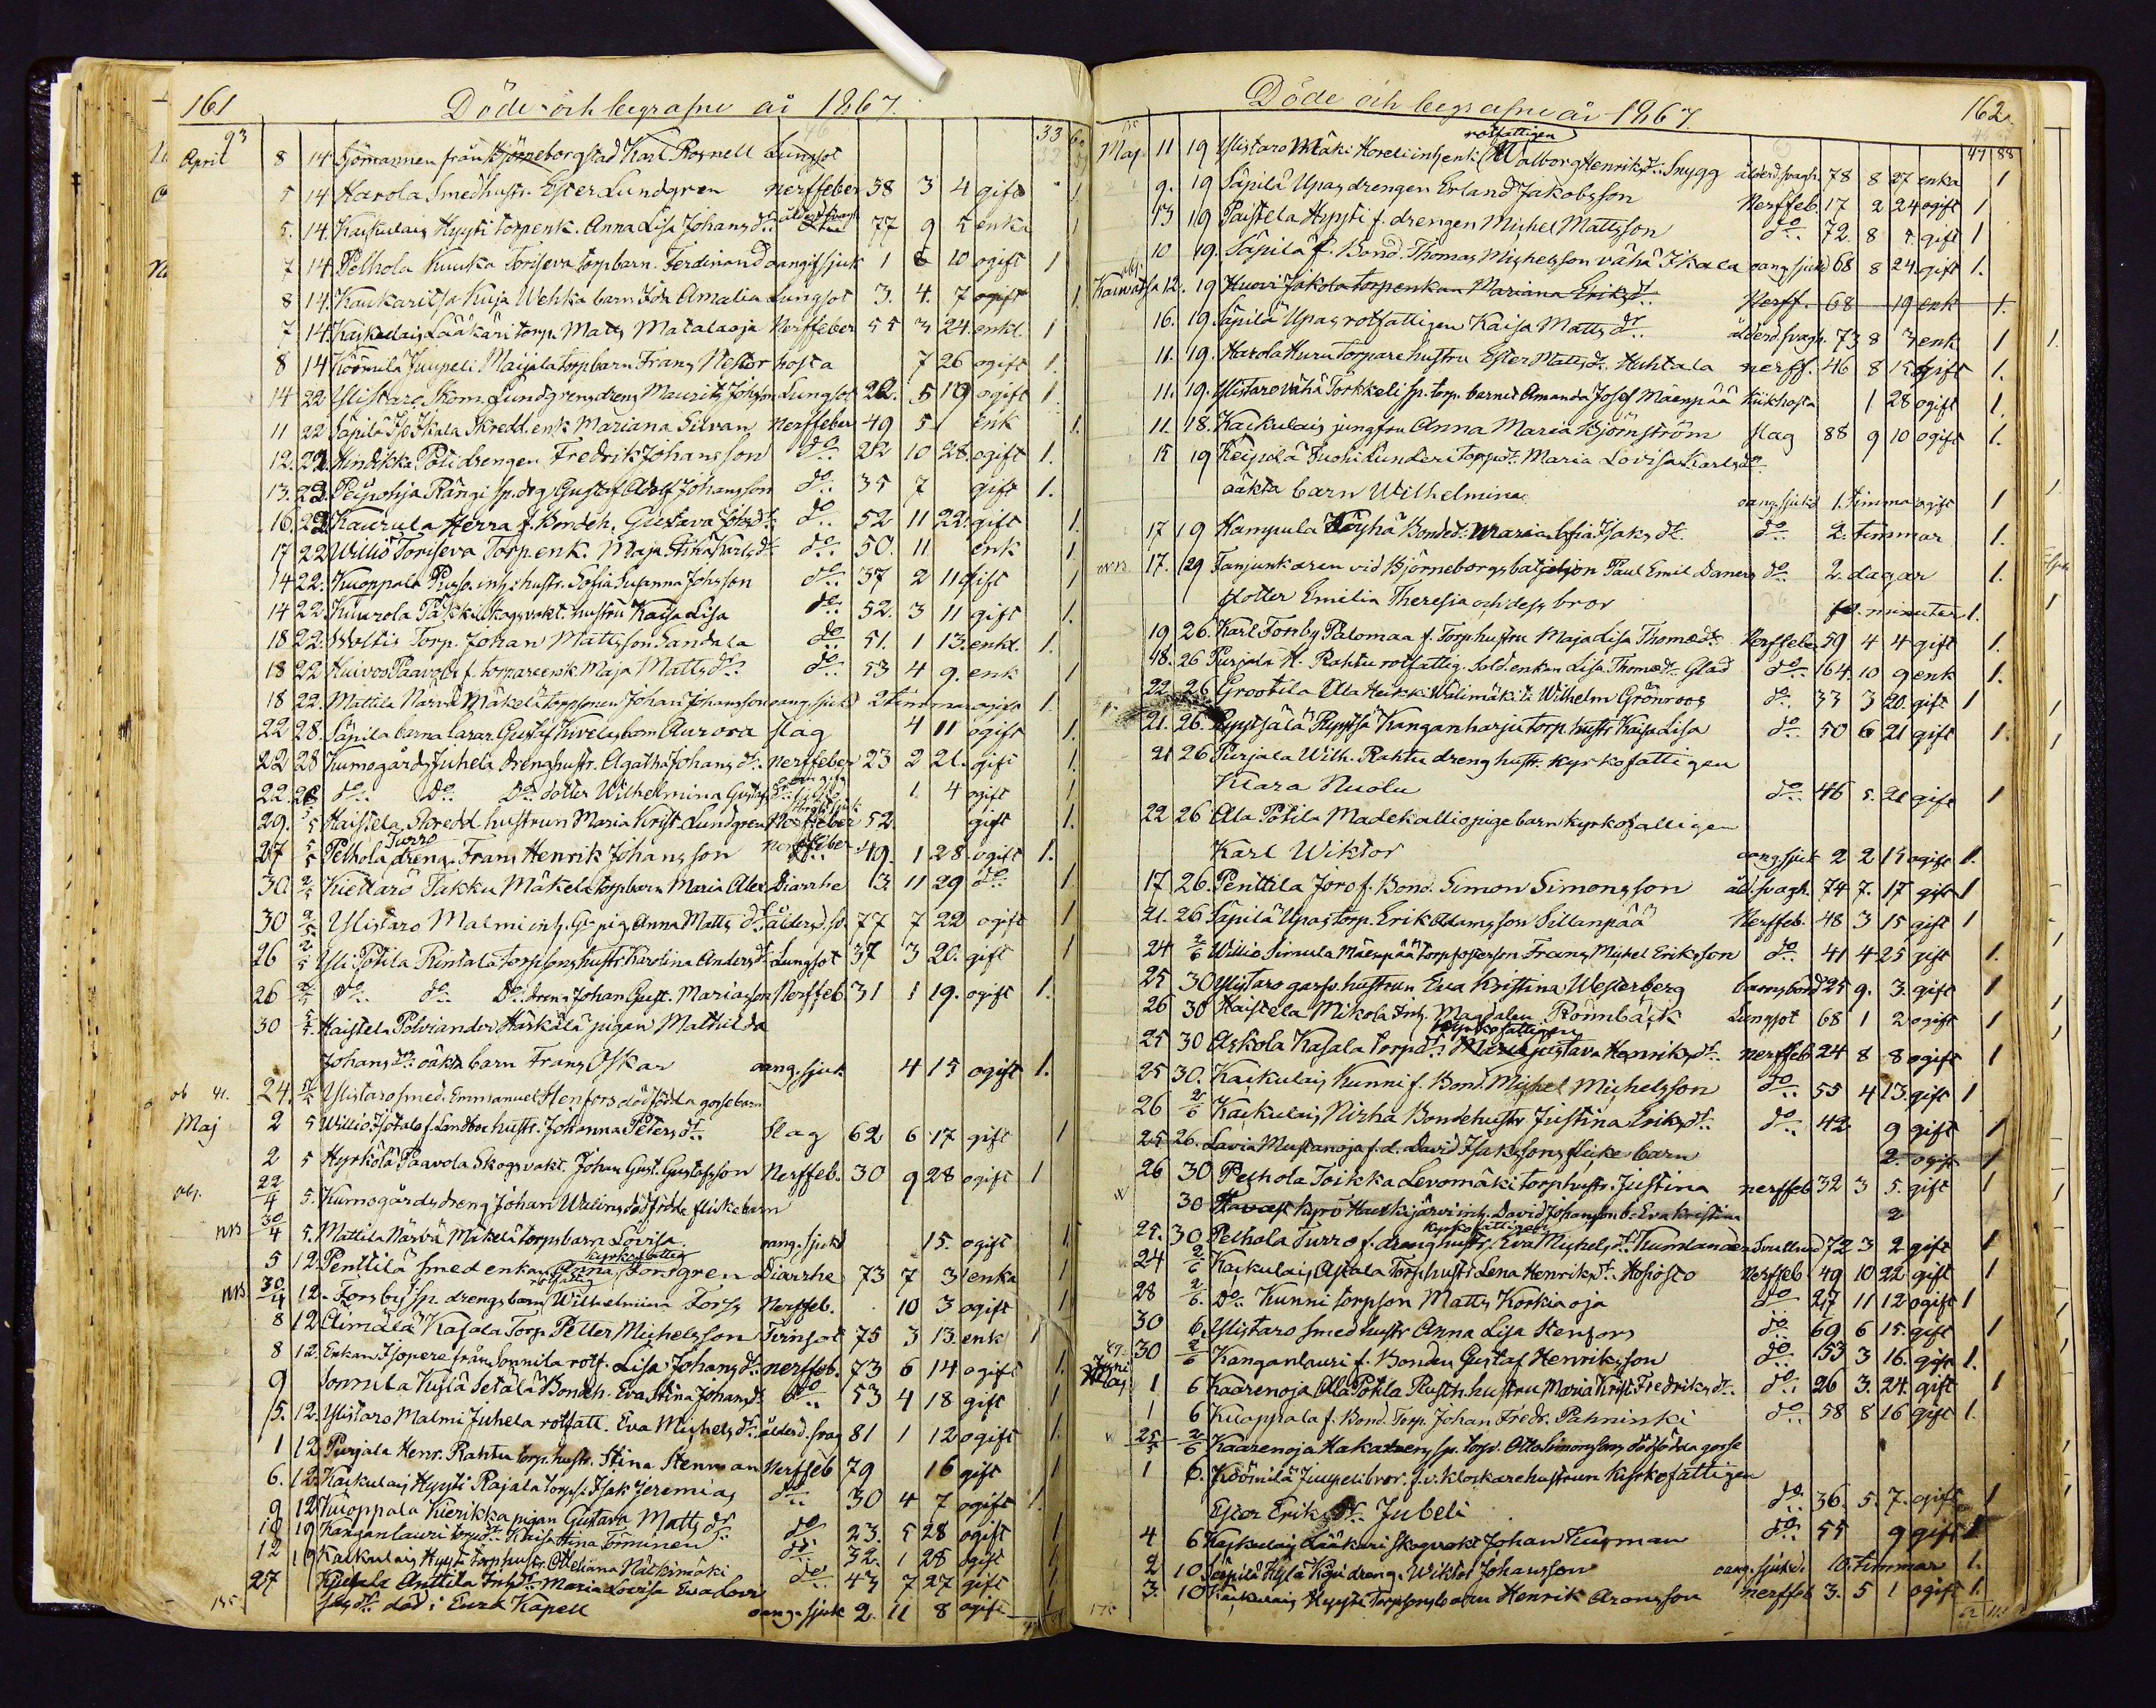 161 Döde och begrafne år 1867.
93 33
April 8 14 Sjömannen från Björneborg stad Karl Rosnell Lungsot
5 14 Harola Smedhustr. Ester Lundgren nerffeber 38 3 4 gift
5. 14. Kaukulais Hyysti torpenk. Anna Lisa Johansdr. ålderdsvagh 77 9 5 enka 1
7 14 Pelhola Kuuka Torseva torpbarn. Ferdinand oangifsjuk 1 6 10 ogift 1
8 14. Kaukaritsa Kuja Wehka barn Ida Amalia Lungsot 3. 4. 7 ogift 1.
7 14. Kaukulais Lääkäri torp. Matts Matalaoja Nerffeber 55 3 24. enkl. 1
8 14 Köömilä Juupeli Maijala torpbarn Frans Nestor hosta 7 26 ogift 1.
14 22 Ylistaro Skom. Lundgrens dreng Mauritz Johsson Lungsot 22. 5 19 ogift 1
11 22 Säpilä Iso Ikala Skredd. enk Mariana Silvan Nerffeber 49 5 enk 1.
12. 22. Hindikka Poti drengen Fredrik Johansson do 22 10 28. ogift 1.
13. 22. Peipohja Rängi sp. drg Gustaf Adolf Johansson do 35 7 gift 1.
16. 22. Kaurula Herra f. bondeh. Gustava Johsdr. do 52 11 22. gift 1.
17 22 Williö Torseva Torpenk. Maja Stina Karlsdr do 50. 11 enk 1.
14 22. Kuoppala Pusso. inh. hustr. Sofia Susanna Johsson do 37 2 11 gift 1
14 22. Kuurola Paskki Skogvakt. hustru Kaisa Lisa do 52. 3 11 gift 1.
18 22. Woltis Torp. Johan Mattsson Sandala do 51. 1 13. enkl. 1.
18 22 Huivoo Paavola f. torpareenk. Maja Mattsdr. do 53 4 9. enk 1
18 22. Mattila Närvä Mäkelä torpsonen Johan Johansson oang. sjukd 2 timma ogift 1.
22 28. Säpilä barnalärar. Gustaf Kivelas barn Aurora slag 4 11 ogift 1.
22 28 Kumogårds Juhela drenghustr. Agatha Johansdr. nerffeber 23 2 21. gift 1.
22. 28 do do do dotter Wilhelmina Gustafsdr 1 4 ogift 1
29. 5/5 Haistela Skredd hustrun Maria Krist. Lundgren 52. gift 1.
27 5/5 Pelhola Turro dreng. Frans Henrik Johansson nerffeber 49. 1 28. ogift 1.
30. 2/5 Kiettarö Takku Mäkelä torpbarn Maria Alex. Diarrhe 13. 11 29 do 1
30 2/5 Ylistaro Malmi inh. pig. Anna Mattsdr. ålderds. 77 7 22 ogift 1
26 2/5 Yli Potila Rintala torpsons hustr. Karolina Andersdr. Lungsot 37 3 20. gift 1
26 2/5 do do do dreng Johan Gust. Mariasson Nerffeb. 31 1 19. ogift 1.
30 5/5. Haistela Polviander Härkälä pigan Mathilda
Johansdr: oäkta barn Frans Oskar oang. sjuk. 4 15 ogift 1.
24. 5/5 Ylistaro smed. Emmanuel Stenfors dödfödda gossebarn
Maj 2 5 Williö Isotalo f. Landboe hustr. Johanna Petersdr. Slag 62 6 17 gift 1
2 5 Hyrkölä Paavola Skogsvakt. Johan Gust. Gustafsson Nerffeb. 30 9 28 ogift 1
22/4 5. Kumogårds dreng Johan Wilens dödfödda flickebarn
30/4 5. Mattila Närvä Mäkelä torpsbarn Lovisa. oang. sjukd 15. ogift 1
5 12. Penttilä Smedenkan Anna Forsgren kyrkofattig Diarrhe 73 7 3 enka 1
30/4 12. Forsby sp. drengs barn Wilhelmina Forss Nerffeb. 10 3 ogift 1
8 12. Äimälä Kasala Torp. Petter Michelsson Tvinsot 75 3 13. enk 1
8 12. Enkan Isopere från Sonnila rotf. Lisa Johansdr. nerffeb. 73 6 14 ogift 1.
9 Sonnila Kylä Setälä Bondeh. Eva Stina Johansdr. do 53 4 18 gift 1
5. 12. Ylistaro Malmi Juhela rotfatt. Eva Michelsdr: ålderd. svag 81 1 12 ogift 1.
1 12 Purjala Henr. Rahtu torp. hustr. Stina Stenman Nerffeb 79 16 gift 1
6. 12. Kaukulais Hyysti Rajala torps. Isak Jeremias do 30 4 7 ogift 1.
9 12. Kuoppala Kierikka pigan Gustava Mattsdr do 23. 5 28 ogift 1
18 19 Kanganlauri torpdr. Kaisa Stina Törminen do 32. 1 28 ogift 1
12 19 Kaukulais Hyysti torphustr. Otteliana Nätkimäki do 43 7 27 gift 1
27 Kjulala Anttila inhdr. Maria Lovisa Eva Lovi
sasdr. död i Eura Kapell oang. sjuk 2. 11 8 ogift 1
Döde och begrafne år 1867. 162.
47 88
Maj 11 19 Ylistaro Mäki Horeli inh. enk. rotfattigen Walborg Henriksdr. Snygg ålderd svagh. 78 8 27 enka 1
9. 19 Säpilä Upas drengen Erland Jakobsson Nerffeb. 17 2 24 ogift 1
13 19 Paistela Hyysti f. drengen Michel Mattsson do. 72. 8 5. gift 1
10 19. Säpilä f. Bond. Thomas Michelsson vähä Ikala oang. sjukd 68 8 24. gift 1.
Kauvatsa 12. 19 Huovi Jakola torpenkan Mariana Eriksdr Nerff. 68 19 enk 1.
16. 19 Säpilä Upas rotfattigen Kaisa Mattsdr. ålderd. svagh. 73 8 3 enk 1
11. 19. Harola Huru Torpare hustru Ester Mattsdr. Huhtala nerff. 46 8 15 gift 1.
11. 19. Ylistaro Vähä Törkkeli sp. torp. barnet Amanda Josef Mäenpää kikhosta 1 28 ogift 1.
11 18. Kaukulais jungfru Anna Maria Björnström slag 88 9 10 ogift 1.
15 19 Keipilä Tuohi Lunderi torpdr. Maria Lovisa Karlsdr
oäkta barn Wilhelmina oang. sjukd 1. timma ogift 1
17 19 Hampula Köyhä Bondedr. Maria Sofia Isaksdr. do 2. timmar 1.
17. 29 Fanjunkaren vid Björneborgs bataljon Paul Emil Daners do 2. dagar 1.
dotter Emilia Theresia och dess bror 10. minuter 1.
19 26. Karl Forsby Palomaa f. Torphustru Maja Lisa Thomædr. Nerffeber 59 4 4 gift 1.
18. 26 Purjala H. Rahtu rotfattig. sold. enkan Lisa Thomædr. Glad do 64. 10 9 enk 1.
22 26 Grootila Ala Heikki Välimäki t. Wilhelm Grönroos do 33 3 20. gift 1
21. 26. Ryytsälä Ryytsä Kanganharju torp. hustr. Kaisa Lisa do 50 6 21 gift 1.
21 26 Purjala Wilh. Rahtu dreng hustr. kyrkofattigen
Klara Nuolu do 46 5. 21 gift 1
22 26 Ala Potila Madekallio pige barn kyrkofattigen
Karl Wiktor oang. sjuk 2 2 15 ogift 1.
17 26. Penttila Joro f. Bond. Simon Simonsson åld. svagh. 74 7. 17 gift 1
21. 26 Säpilä Upas torp. Erik Adamsson Sillanpää Nerffeb. 48 3 15 gift 1
24 2/6 Williö Simula Mäenpää torpfosterson Frans Michel Eriksson do 41 4 25 gift 1.
25 30 Ylistaro garfv. hustrun Eva Kristina Westerberg barnsbörd 25 9. 3. gift 1
26 30 Haistela Mikola Inh. Magdalen Rönnbäck Lungsot 68 1 2 ogift 1
25 30 Askola Kasala torpdr. kyrkofattigen Maria Gustava Henriksdr. nerffeb. 24 8 8 ogift 1
25 30. Kaukulais Kunni f. Bond. Michel Michelsson do 55 4 13. gift 1
26 2/6 Kaukulais Nirha Bondehustr. Justina Eriksdr. do 42. 9 gift 1
25 26. Lavia Mustanoja f. d. David Isakssons flicke barn 2. ogift 1
26 30 Pelhola Toikka Levomäki torphustr. Justina nerffeb 32 3 5. gift 1
30 Kyrö Haukijärvi inh. David Johansson b. Eva Kristina 2
25. 30 Pelhola Turro f. dreng hustr. kyrkofattigen Eva Michelsdr. Kumlander Svullnad 72 3 2 gift 1
24 2/6 Kaukulais Astala Torphustr Lena Henriksdr. Hosiosto Nerffeb 49 10 22 gift 1
28 2/6. do Kunni torpson Matts Korkiaoja do 27 11 12 ogift 1
30 6. Ylistaro smed hustr Anna Lisa Stenfors do 69 6 15. gift 1
30 2/6 Kanganlauri f. Bonden Gustaf Henriksson do 53 3 16. gift 1.
Juni 1 6 Kaarenoja Ala Potila Rusth. hustru Maria Krist. Fredriksdr. do 26 3. 24. gift 1
1 6 Kuoppala f. Bond. Torp. Johan Fredr. Pahninski do 58 8 16 gift 1.
25/5 2/6 Kaarenoja sp. torp. Otto Simonssons dödfödda gosse
1 6. Köömilä Juupeli bror. f. v. klockare hustrun kyrkofattigen
Ester Eriksdr. Jubeli do 36. 5. 7. gift 1
4 6 Kaukulais Lääkäri Skogvakt Johan Kurman do 55 9 gift 1
2 10 Säpilä Kylä Kiju dreng. Wiktor Johansson oang. sjukd. 10. timmar 1.
3. 10 Kaukulais Hyysti Torpsons barn Henrik Aronsson nerffeb 3. 5 1 ogift 1.